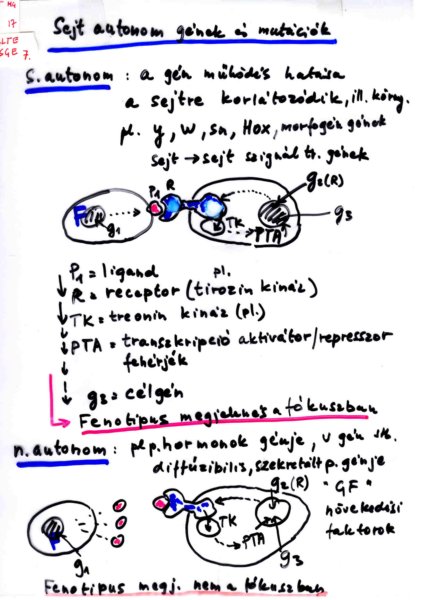 MG
17
ELTE
SGE 7.
Sejt autonom gének és mutációk
s. autonom : a gén működés hatása
a sejtre korlátozódik, ill. körny.
pl. y, w, sn, Hox, morfogén gének
sejt → sejt szignál tr. gének
P1 R g2(R)
F g1 TK PTA g3
P1 = ligand pl.
R = receptor (tirozin kináz)
TK = treonin kináz (pl.)
PTA = transzkripció aktivátor/represszor
fehérjék
g3 = célgén
Fenotípus megjelenés a fókuszban
n. autonom : pl p. hormonok génje, v gén stb.
diffúzibilis, szekretált p. génje
g2(R) "GF"
TK növekedési
F PTA faktorok
g1 g3
Fenotípus megj. nem a fókuszban